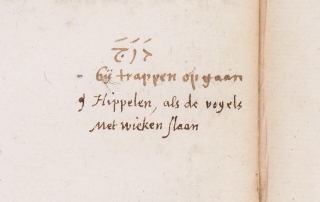 دَرَجَ
Bij trappen opgaan
Hippelen, als de vogels
Met wieken slaan